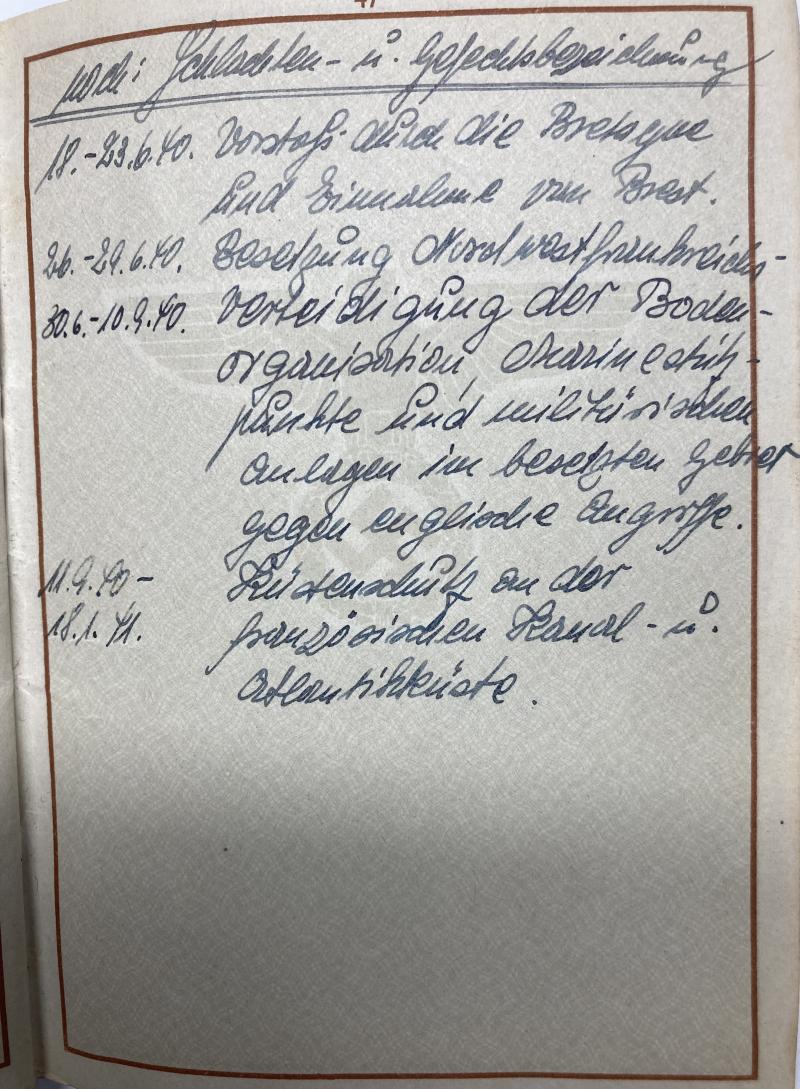 47
noch: Schlachten- u. Gefechtsbezeichnung
18.-23.6.40. Vorstoß durch die Bretagne
und Einnahme von Brest.
26.-29.6.40. Besetzung Nordwestfrankreichs-
30.6.-10.9.40. Verteidigung der Boden-
organisation, Marinestütz-
punkte und militärischen
Anlagen im besetzten Gebiet
gegen englische Angriffe.
11.9.40- Küstenschutz an der
18.1.41. französischen Kanal- u.
Atlantikküste.